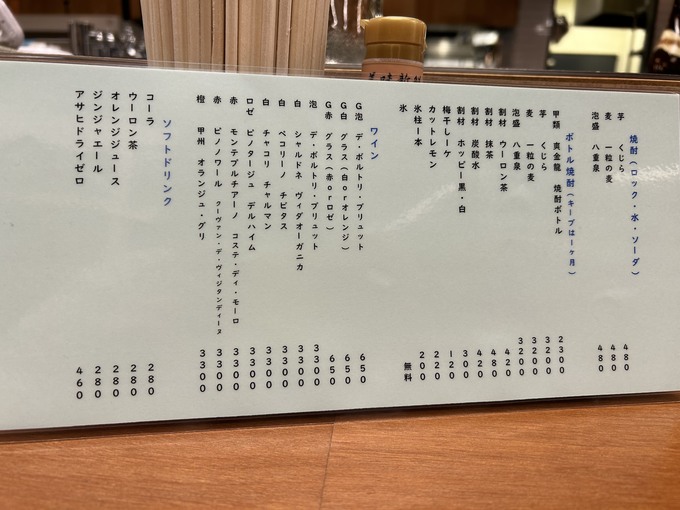 焼酎(ロック・水・ソーダ)
芋 くじら 480
麦 一粒の麦 480
泡盛 八重泉 480
ボトル焼酎(キープは1ヶ月)
甲類 爽金龍 焼酎ボトル 2300
芋 くじら 3200
麦 一粒の麦 3200
泡盛 八重泉 3200
割材 ウーロン茶 420
割材 抹茶 480
割材 炭酸水 420
割材 ホッピー黒・白 300
梅干し一ケ 120
カットレモン 200
氷柱一本 200
氷 無料
ワイン
G泡 デ・ボルトリ・ブリュット 650
G白 グラス(白orオレンジ) 650
G赤 グラス(赤orロゼ) 650
泡 デ・ボルトリ・ブリュット 3300
白 シャルドネ ヴィダオーガニカ 3300
白 ペコリーノ チビタス 3300
白 チャコリ チャルマン 3300
ロゼ ピノタージュ デルハイム 3300
赤 モンテプルチアーノ コステ・ディ・モーロ 3300
赤 ピノノワール クーヴァン・デ・ヴィジタンディーヌ 3300
橙 甲州 オランジュ・グリ 3300
ソフトドリンク
コーラ 280
ウーロン茶 280
オレンジジュース 280
ジンジャエール 280
アサヒドライゼロ 460